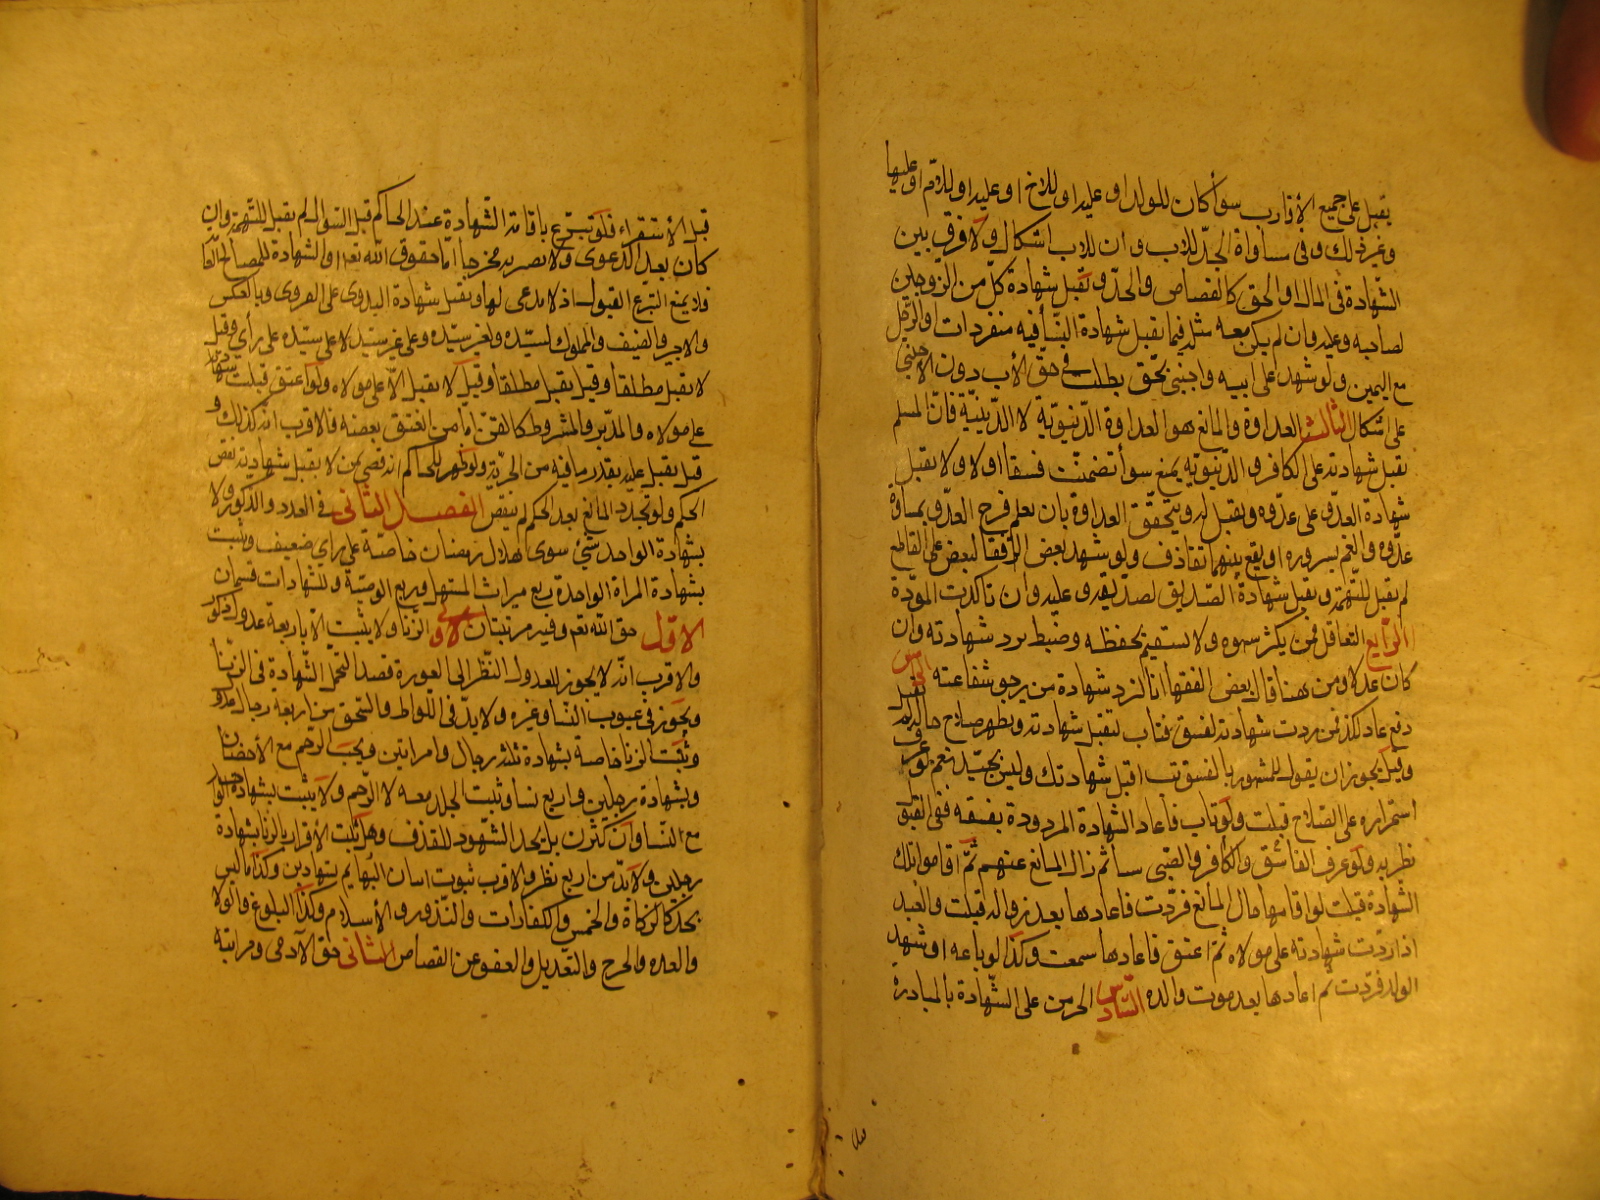 يقبل على جميع الأقارب سوأ كان للولد او عليه او للاخ او عليه او للام او عليها
وغير ذلك وفى مساواة الجدّ للاب وان للاب اشكال ولا فرق بين
الشهادة فى المال والحق كالقصاص والحدّ وتقبل شهادة كلّ من الزوجين
لصاحبه وعليه وان لم يكن معه مثله فيما يقبل شهادة النسأ فيه منفردات او الرّجل
مع اليمين ولو شهد على ابيه واجنبى بحق بطلت فى حقّ الأب دون الاجنبى
على اشكال الثالث العداوة والمانع هو العداوة الدّنيويّة لا الدّينيّة فانّ المسلم
يقبل شهادته على الكافر والدّنيويّه يمنع سوأ تضمنت فسقا او لا ولا يقبل
شهادة العدّو على عدّوه ويقبل له ويتحقق العداوة بان يعلم فرح العدّو بمساوة
عدّوه والغم بسروره او يقع بينهما تقاذف ولو شهد بعض الرّفقأ لبعض على القاطع
لم يقبل للتّهمة ويقبل شهادة الصّديق لصديقه وعليه وان تاكدت المودّة
الرّابع التغافل فمن يكثر سهوه ولا يستقيم تحفظه وضبطه يرد شهادته وان
كان عدلا ومن هنا قال بعض الفقها انا لنرد شهادة من يرجو شفاعته الخامس
دفع عار الكذب فمن ردت شهادته لفسق فتاب لتقبل شهادته ويظهر صلاح حاله لم تقبل
وقيل يجوز ان يقول للمشهور بالفسق تب اقبل شهادتك وليس بجيّد نعم لو عرف
استمراره على الصّلاح قبلت ولو تاب فاعاد الشّهادة المردودة بفسقه ففى القبول
نظر ولو عرف الفاسق والكافر والصّبى شيأ ثم زال المانع عنهم ثمّ اقاموا تلك
الشّهادة قبلت ولو اقامها حال المانع فردّت فاعادها بعد زواله قبلت والعبد
اذا ردّت شهادته على مولاه ثمّ اعتق فاعادها سمعت وكذا لو باعه او شهد
الولد فردّت ثم اعادها بعد موت والده السّادس الحرص على الشّهادة بالمبادرة
قبل الأستقراء فلو تبرّع باقامة الشّهادة عند الحاكم قبل السّوال لم يقبل للتّهمة وان
كان بعد الدّعوى ولا يصير به مجروحا امّا حقوق الله تعالى او الشهادة للمصالح العامّة
فلا يمنع التبرع القبول اذ لا مدعى لها ويقبل شهادة البدوى على القروى وبالعكس
والاجير والضيف والمملوك لسيّده ولغير سيّده وعلى غير سيّده لا على سيّده على رأى وقيل
لا يقبل مطلقا وقيل يقبل مطلقا وقيل لا يقبل الاّ على مولاه ولو اعتق قبلت شهادته
على مولاه والمدبّر والمشروط كالقنّ امّا من انعتق بعضه فالاقرب انّه كذلك و
قيل يقبل عليه بقدر ما فيه من الحرّية ولو ظهر للحاكم انه قضى بمن لا يقبل شهادته نقض
الحكم ولو تجدد المانع بعد الحكم لم ينقض الفصل الثانى فى العدد والذكورة ولا
بشهادة الواحد شئ سوى هلال رمضان خاصّة على راى ضعيف ويثبت
بشهادة المراة الواحدة ربع ميراث المستهل وربع الوصيّة والشهادات قسمان
الاوّل حق الله تعم وفيه مرتبتان الاولى الزنا ولا يثبت الاّ باربعة عدول ذكور
والاقرب انّه لا يجوز للعدول النّظر الى العورة قصد التحمل الشّهادة فى الزنا
ويجوز فى عيوب النّسا وغيره ولا بدّ فى اللّواط والسّحق من اربعة رجال عدول
ويثبت الزنا خاصة بشهادة ثلثه رجال وامراتين ويجب الرّجم مع الأحصان
وبشهادة رجلين واربع نسا ويثبت الجلد معه لا الرّجم ولا يثبت بشهادة الواحد
مع النّسا وان كثرن بل يحد الشّهود للقذف وهل يثبت الأقرار بالزنا بشهادة
رجلين ولا بدّ من اربع نظر والاقرب ثبوت اتيان البهايم بشهادين وكذا ما ليس
بحدّ كالزكاة والخمس والكفارات والنّذور والأسلام وكذا البلوغ والولا
والعده والجرح والتّعديل والعفو عن القصاص الثّانى حق الآدمى ومراتبه